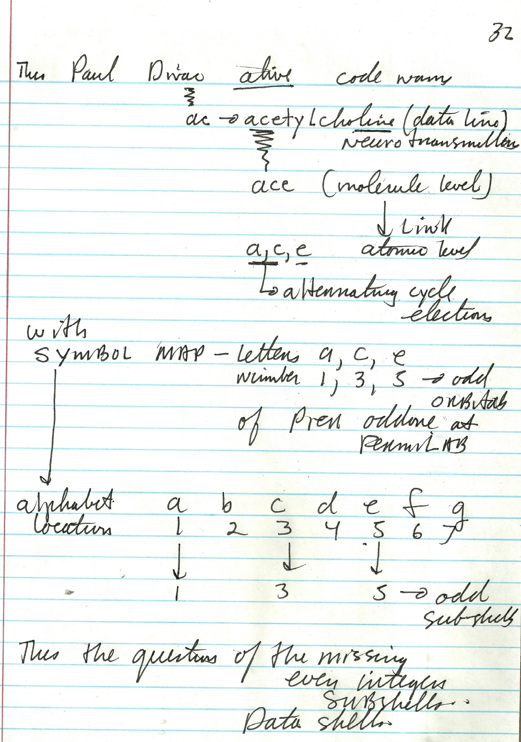 32
Thus Paul Dirac alive code name
ac → acetylcholine (data line)
neurotransmitter
ace (molecule level)
↓ Link
a, c, e atomic level
↳ alternating cycle
elections
with
SYMBOL MAP - letters a, c, e
number 1, 3, 5 → odd
ORBITALS
of Pren oddone at
FermiLAB
alphabet a b c d e f g
location 1 2 3 4 5 6 7
1 3 5 → odd
subshells
Thus the question of the missing
even integers
Subshells..
Data shells.